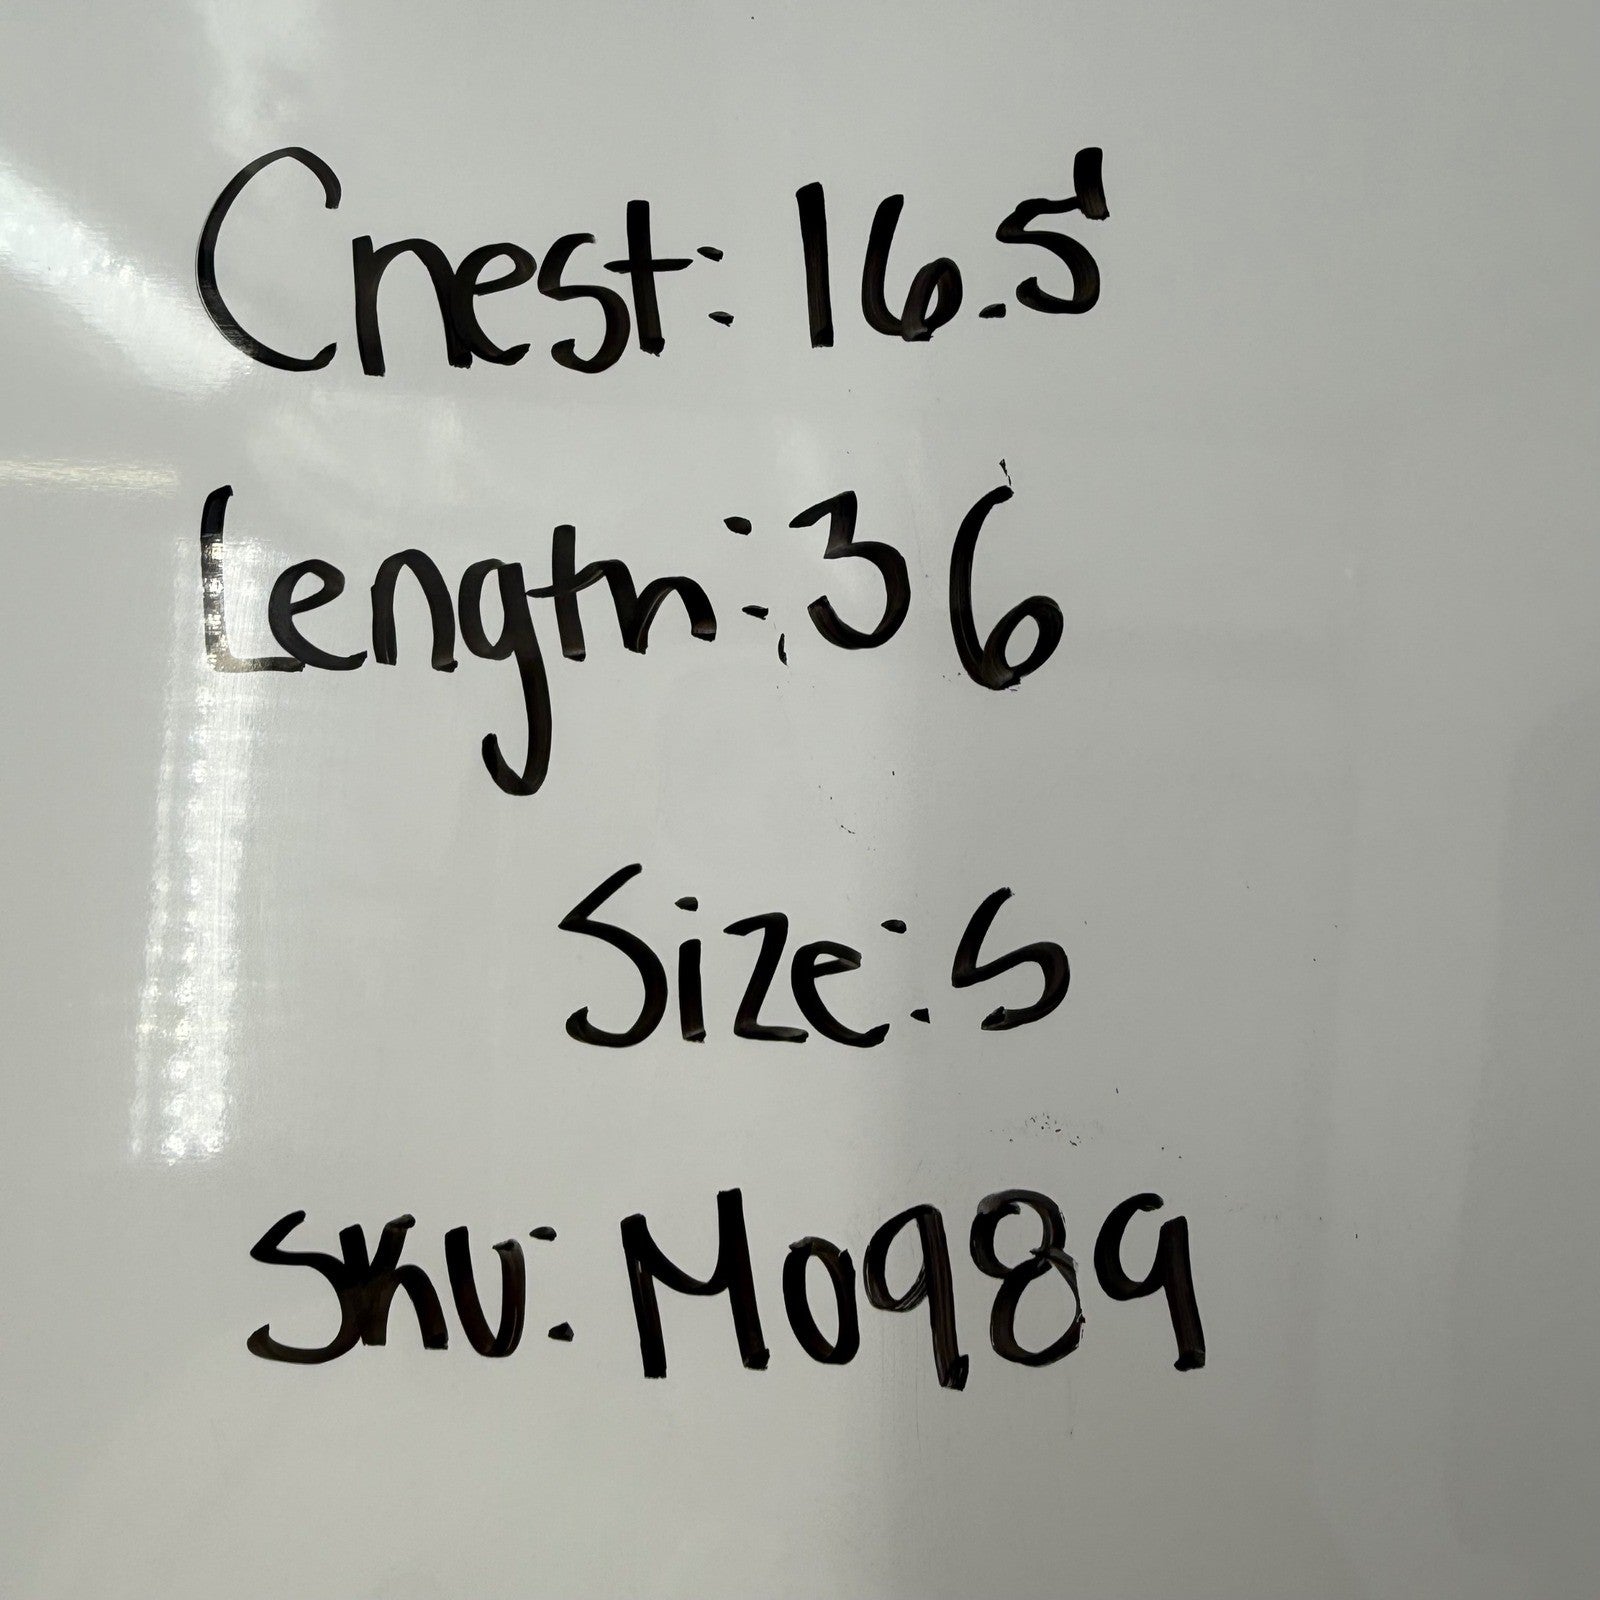 Chest: 16.5
Length: 36
Size: S
SKU: M0989